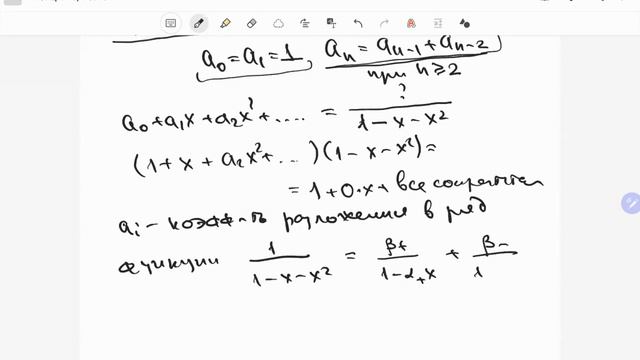 a₀ = a₁ = 1, aₙ = aₙ₋₁ + aₙ₋₂
при n ≥ 2
a₀ + a₁x + a₂x² + .... = ? / (1 − x − x²)
(1 + x + a₂x² + ...)(1 − x − x²) =
= 1 + 0·x + все сократится
aᵢ − коэфф-ты разложения в ряд
функции 1 / (1 − x − x²) = β₊ / (1 − α₊x) + β₋ / 1